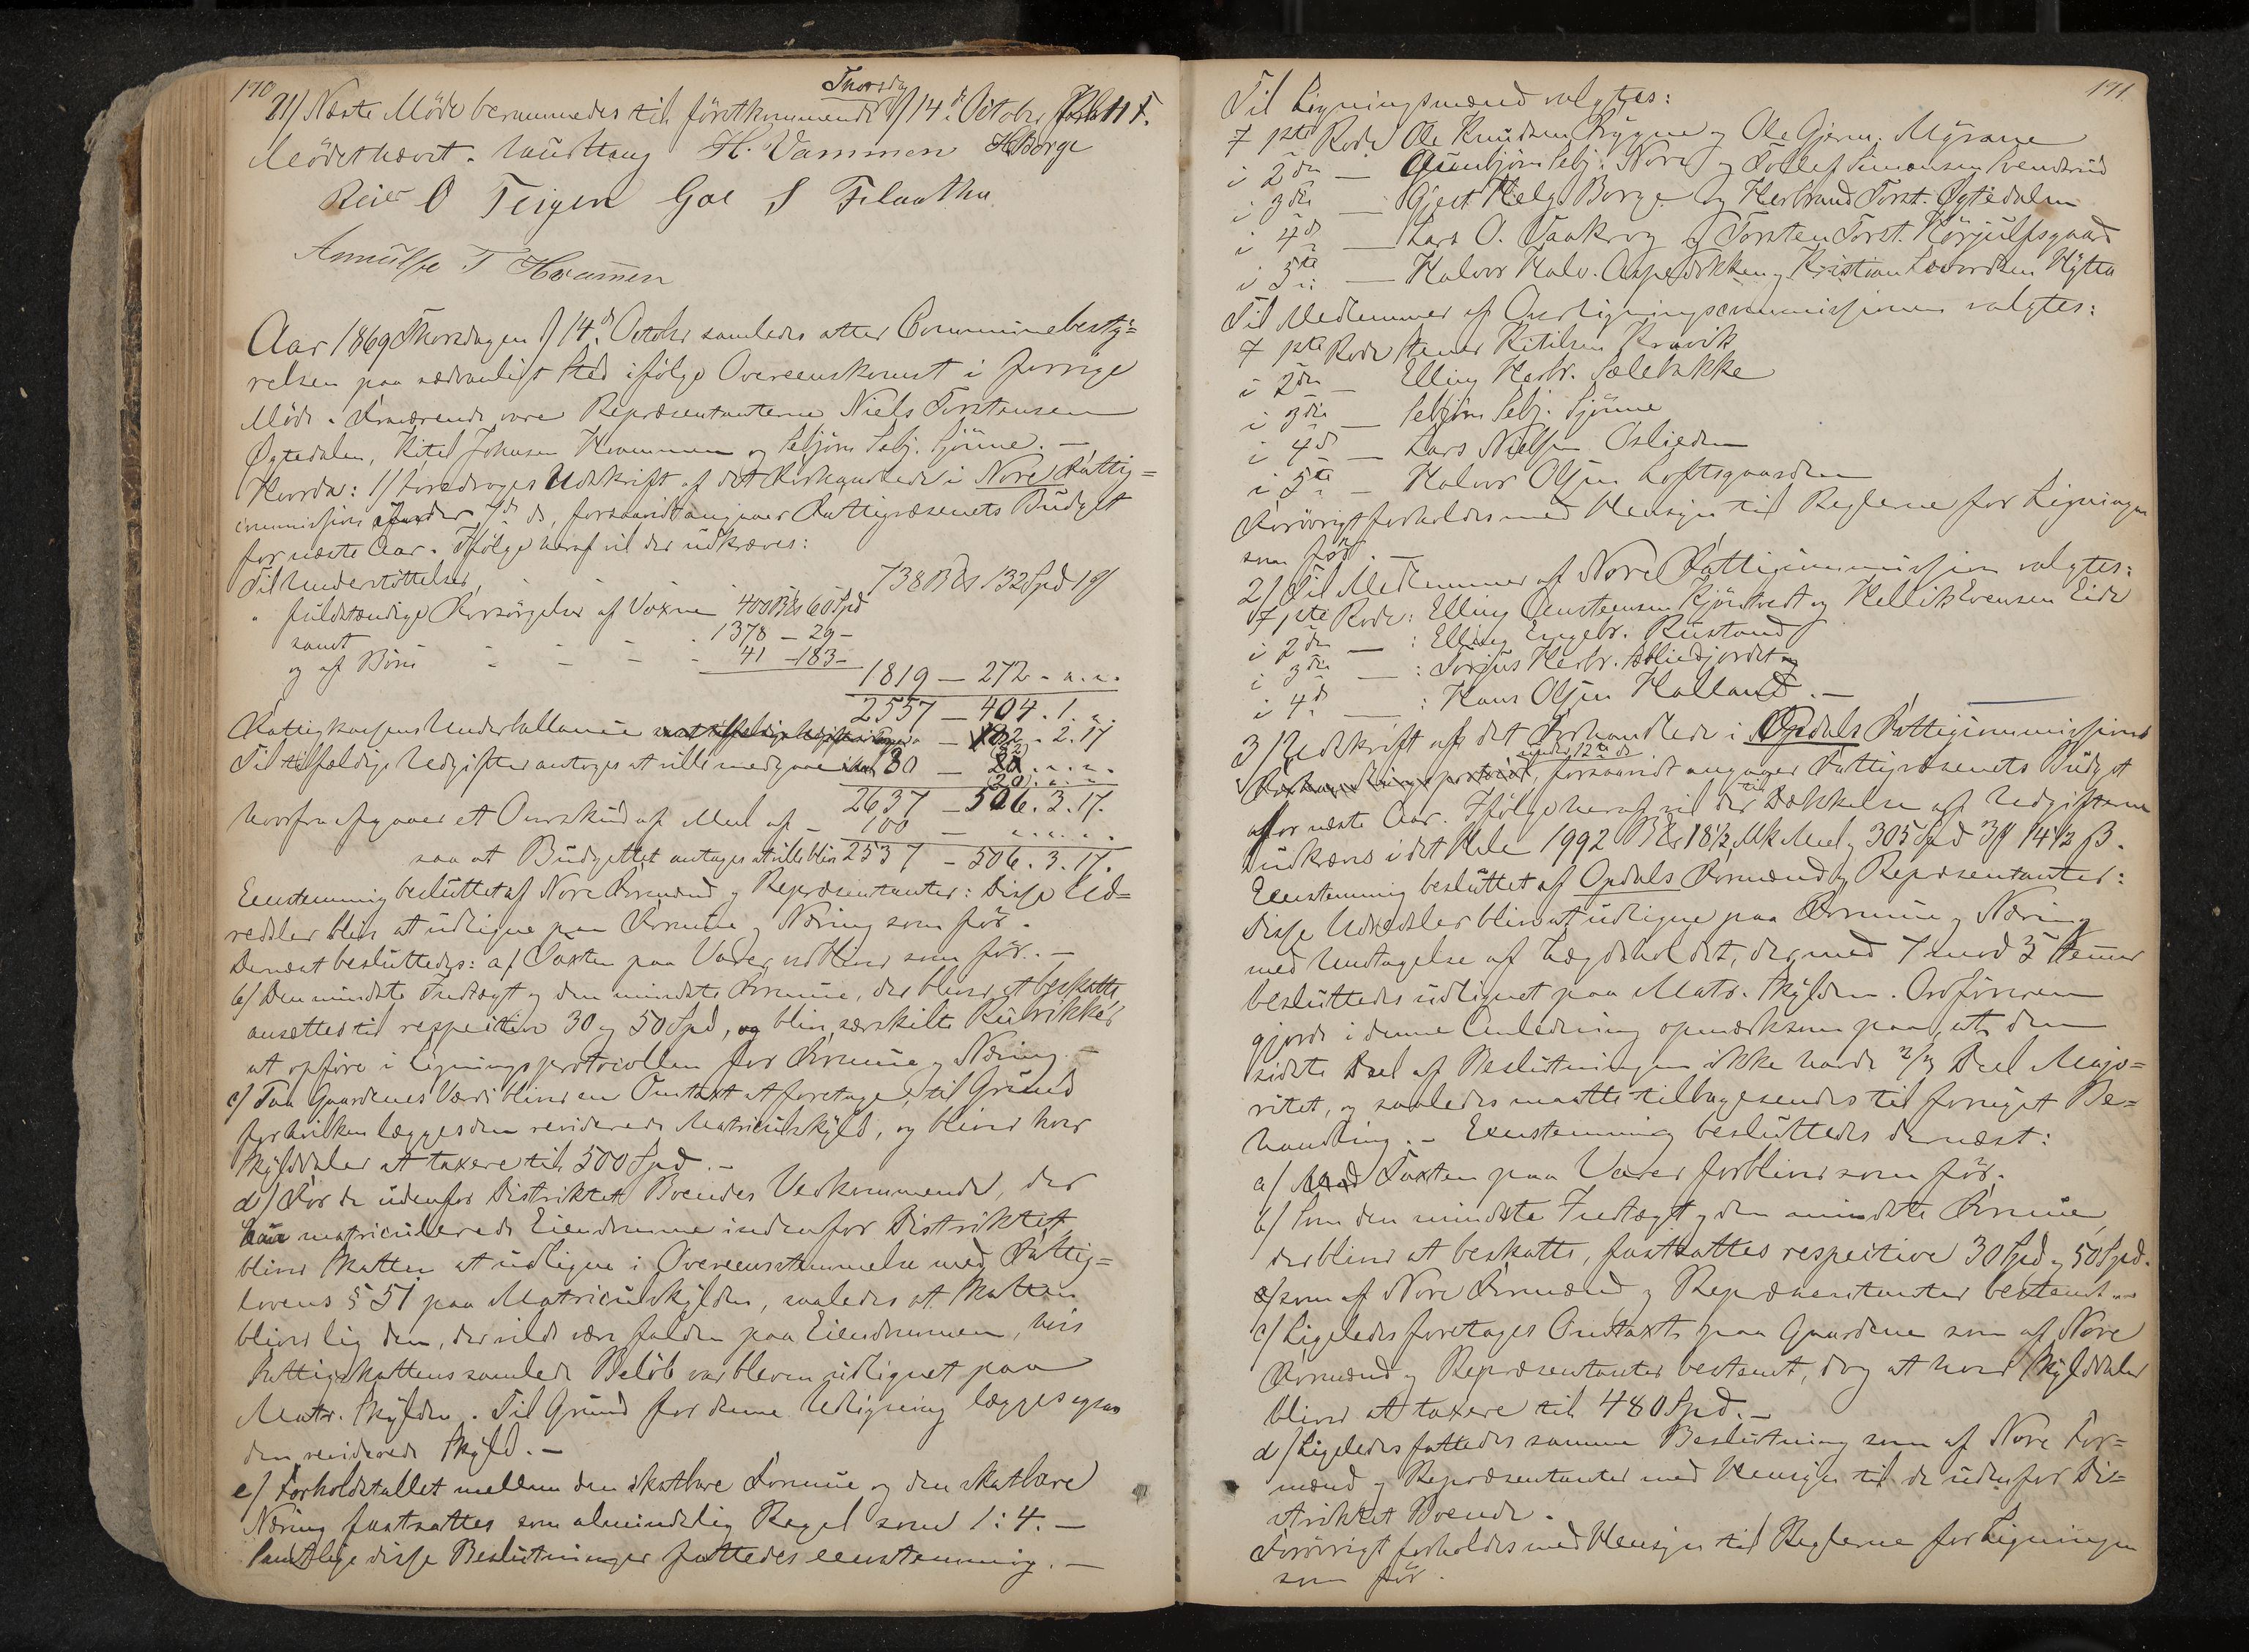 170
21/ Næste Møde berammedes til förstkommende Thorsdag d/ 14d. October Kl. 11 F.
Mødet hævet. H. Vammen HBorge
Reier O Teigen Goe S
T Hvammen
Aar 1869 Thorsdagen d/ 14d. October samledes atter Communebesty=
relsen paa sædvanligt Sted ifölge Overeenskomst i forrige
Möde. Nærværende vare Repræsentanterne Niels Torstensen
Øgtedalen, Kitel Johnsen Kvammen og Sebjörn Sebj. Sjönne. —
Hvorda: 1/ foredroges Udskrift af det Forhandlede i Nore Fattig=
commission under 7de ds, forsaavidt angaaer Fattigvæsenets Budget
for næste Aar. Ifölge heraf vil der udkræves:
Til Understöttelser, - - - 738 132 Spd 1
" fuldstændige Forsörgelse af Voxne 400 60 Spd
samt - - - 1378 - 29 -
og af Börn - - - - 41 - 183 -
1819 - 272 - " . " .
2557 - 404 . 1 . "
Fattigkassens Underballance - 2 . 17
Til tilfældige Udgifter antages at ville medgaae 80 - 20 . " . "
2637 - 506 . 3 . 17.
hvorfra afgaaer et Overskud af Meel af - 100 - " . " . "
saa at Budgettet antages at ville blive 2537 - 506 . 3 . 17.
Eenstemmig besluttet af Nore Formænd og Repræsentanter: Disse Ud=
redsler blive at udligne paa Formue og Næring som för.
Dernæst besluttedes: a/ Taxten paa Varer som för. —
b/ Den mindste Indtægt og den mindste Formue, der bliver at beskatte,
ansættes til respective 30 og 50 Spd, og blive særskilte Rubrikker
at opföre i Ligningsprotocollen for Formue og Næring. —
c/ Paa Gaardenes Værdi bliver en Omtaxt at foretage, til Grund
for hvilken lægges den reviderede Matriculskyld, og bliver hver
Skylddaler at taxere til 500 Spd. —
d/ For de udenfor Distriktet Boendes Vedkommende, der
har matriculerede Eiendomme indenfor Distriktet
bliver Skatten at udligne i Overeensstemmelse med Fattig=
lovens § 51 paa Matriculskylden, saaledes at Skatten
bliver lig den, der vilde være falden paa Eiendommen, hvis
Fattigskattens samlede Belöb var bleven udlignet paa
Matr. Skylden. Til Grund for denne Udligning lægges ogsaa
den reviderede Skyld. —
e/ Forholdstallet mellem den skatbare Formue og den skatbare
Næring fastsattes som almindelig Regel som 1 : 4. —
Samtlige disse Beslutninger fattedes eenstemmig. —
171
Til Ligningsmænd valgtes:
I 1ste Rode Ole Knudsen Frygne og Ole Gjerm. Myrane
i 2den — Gunbjörn Sebj. Nore og Tollef Simonsen Svendsrud
i 3die — Gjest Helg. Borge og Herbrand Torst. Øgtedalen
i 4de — Lars O. Taakrog og Torsten Torst. Körjulfsgaard
i 5te — Halvor Halv. Aspedokken og Kristian Levordsen Hytta
Til Medlemmer af Overligningscommissionen valgtes:
I 1ste Rode Stener Kitilsen Kravik
i 2den — Elling Herbr. Sælebakke
i 3die — Sebjörn Sebj. Sjönne
i 4de — Lars Nielsen Oslieden
i 5te — Halvor Olsen Loftsgaarden
Forövrigt forholdes med Hensyn til Reglerne for Ligningen
som för. —
2/ Til Medlemmer af Nore Fattigcommission valgtes:
I 1ste Rode: Elling Austeensen Kjönstvedt og Hellik Evensen Eide
i 2den — : Elling Engebr. Rustand
i 3die — : Torjus Herbr. og
i 4de — : Hans Olsen Halland. —
3/ Udskrift af det Forhandlede i Opdals Fattigcommissions
under 12te ds, forsaavidt angaaer Fattigvæsenets Budget
for næste Aar. Ifölge heraf vil der til Dækkelse af Udgifterne
udkræves i det Hele 1992 18½ Mk Meel og 305 Spd 3 14½ ß.
Eenstemmig besluttet af Opdals Formænd og Repræsentanter:
Disse Udredsler bliver at udligne paa Formue og Næring
med Undtagelse af Lægdsholdet, der med 7 mod 5 Stemmer
besluttedes udlignet paa Matr. Skylden. Ordföreren
gjorde i denne Anledning opmærksom paa, at den
sidste Deel af Beslutningen ikke havde 2/3 Deel Majo=
ritet, og saaledes maatte tilbagesendes til fornyet Be=
handling. — Eenstemmig besluttedes dernæst:
a/ Taxten paa Varer forbliver som för.
b/ Som den mindste Indtægt og den mindste Formue,
der bliver at beskatte, fastsattes respective 30 Spd og 50 Spd.
som af Nore Formænd og Repræsentanter bestemt.
c/ Ligeledes foretages Omtaxt paa Gaardene som af Nore
Formænd og Repræsentanter bestemt, dog at hver Skylddaler
bliver at taxere til 480 Spd. —
d/ Ligeledes fattedes samme Beslutning som af Nore For=
mænd og Repræsentanter med Hensyn til de udenfor Dis=
striktet Boende.
Forövrigt forholdes med Hensyn til Reglerne for Ligningen
som för.